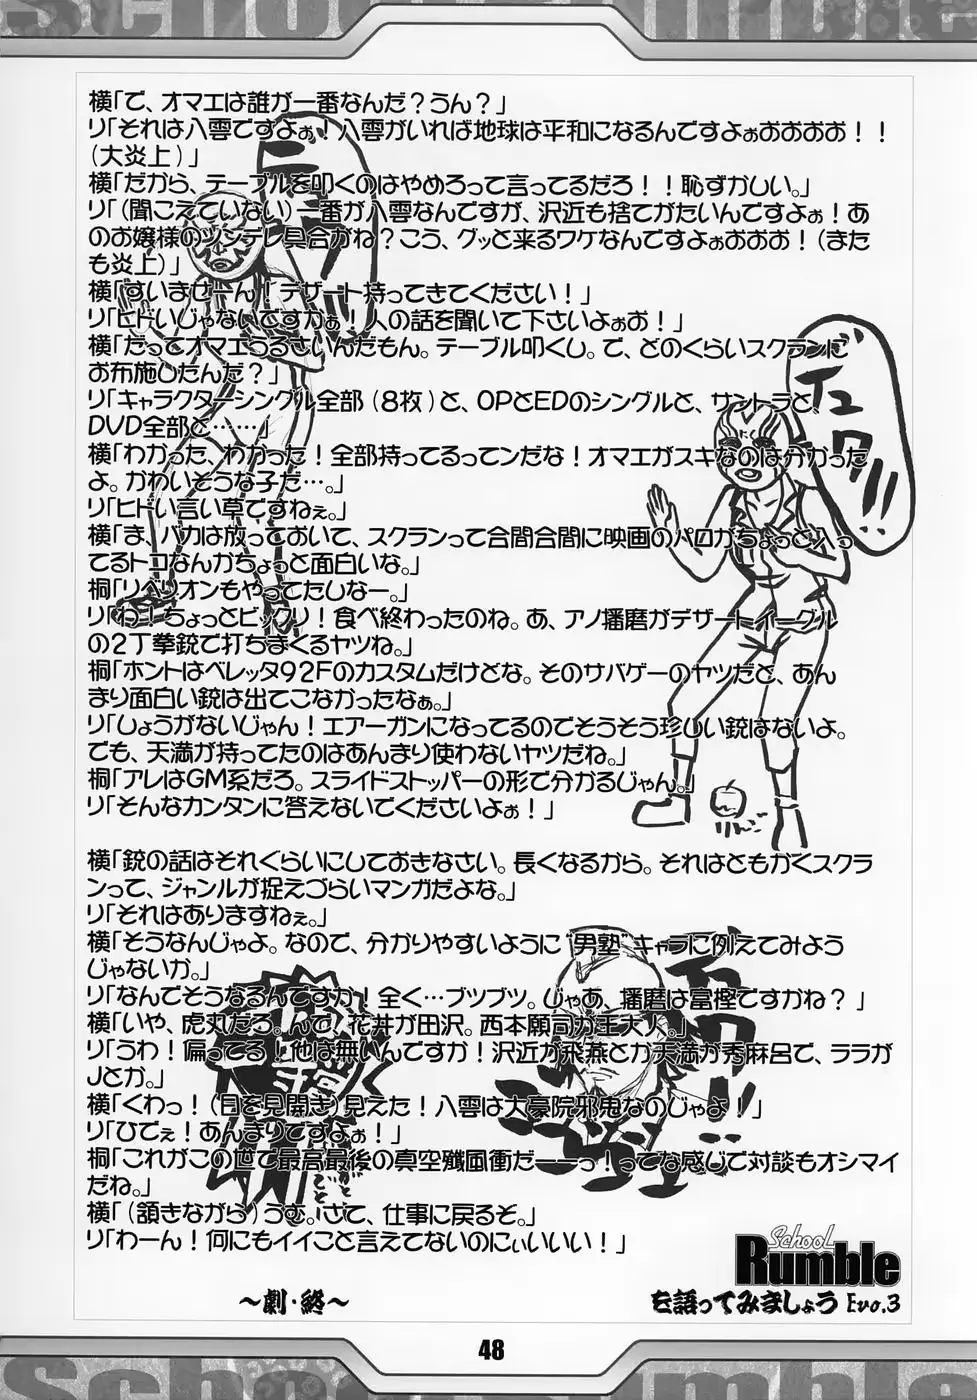 School Rumble
横「で、オマエは誰が一番なんだ？うん？」
リ「それは八雲ですよぉ！八雲がいれば地球は平和になるんですよぉおおおお！！
(大炎上)」
横「だから、テーブルを叩くのはやめろって言ってるだろ！！恥ずかしい。」
リ「(聞こえていない)一番が八雲なんですが、沢近も捨てがたいんですよぉ！あ
のお嬢様のツンデレ具合がね？こう、グッと来るワケなんですよぉおおお！(また
も炎上)」
横「すいませーん！デザート持ってきてください！」
リ「ヒドいじゃないですかぁ！人の話を聞いて下さいよぉお！」
横「だってオマエうるさいんだもん。テーブル叩くし。で、どのくらいスクランに
お布施したんだ？」
リ「キャラクターシングル全部(8枚)と、OPとEDのシングルと、サントラと、
DVD全部と……」
横「わかった、わかった！全部持ってるってンだな！オマエがスキなのは分かった
よ。かわいそうな子だ…。」
リ「ヒドい言い草ですねぇ。」
横「ま、バカは放っておいて、スクランって合間合間に映画のパロがちょっと入っ
てるトコなんかちょっと面白いな。」
桐「リベリオンもやってたしなー。」
リ「わ！ちょっとビックリ！食べ終わったのね。あ、アノ播磨がデザートイーグル
の2丁拳銃で打ちまくるヤツね。」
桐「ホントはベレッタ92Fのカスタムだけどな。そのサバゲーのヤツだと、あん
まり面白い銃は出てこなかったなぁ。」
リ「しょうがないじゃん！エアーガンになってるのでそうそう珍しい銃はないよ。
でも、天満が持ってたのはあんまり使わないヤツだね。」
桐「アレはGM系だろ。スライドストッパーの形で分かるじゃん。」
リ「そんなカンタンに答えないでくださいよぉ！」
りんご
横「銃の話はそれぐらいにしておきなさい。長くなるから。それはともかくスクラ
ンって、ジャンルが捉えづらいマンガだよな。」
リ「それはありますねぇ。」
横「そうなんじゃよ。なので、分かりやすいように“男塾”キャラに例えてみよう
じゃないか。」
リ「なんでそうなるんですか！全く…ブツブツ。じゃあ、播磨は富樫ですかね？」
横「いや、虎丸だろ。んで、花井が田沢。西本願司が王大人。」
リ「うわ！偏ってる！他は無いんですか！沢近が飛燕とか天満が秀麻呂で、ララが
Jとか。」
横「くわっ！(目を見開き)見えた！八雲は大豪院邪鬼なのじゃよ！」
リ「ひでぇ！あんまりですよぉ！」
桐「これがこの世で最高最後の真空殲風衝だーーっ！ってな感じで対談もオシマイ
だね。」
横「(頷きながら)うむ。さて、仕事に戻るぞ。」
リ「わーん！何にもイイこと言えてないのにぃいいい！」
～劇・終～
School
Rumble
を語ってみましょう Evo.3
48
School Rumble